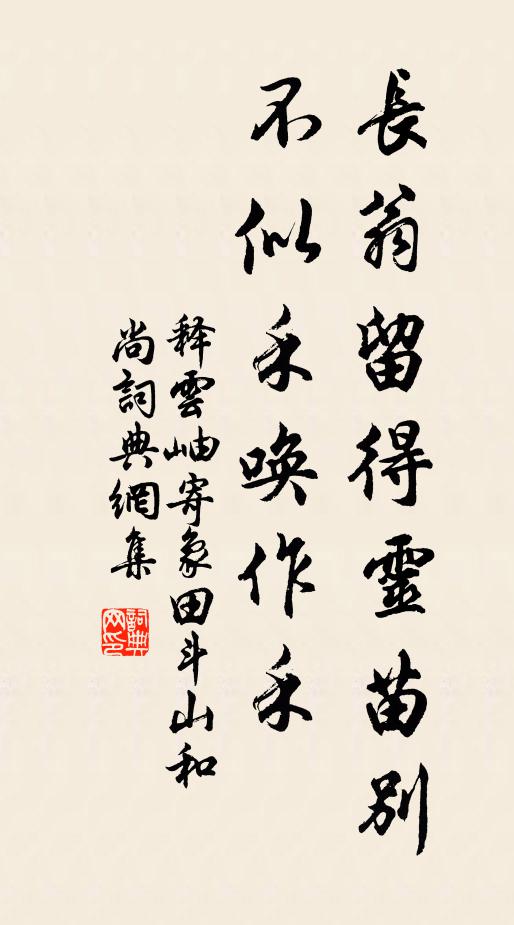 長翁留得靈苗別
不似禾唤作禾
释雲岫寄象田斗山和
尚詞典網集
詞典网印